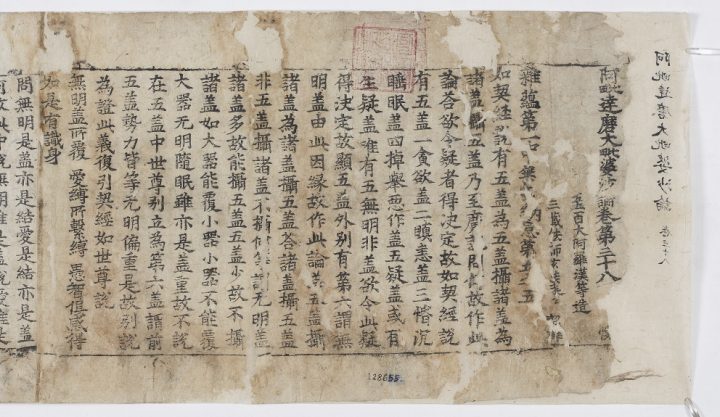 阿毗達磨大毗婆沙論 卷三八
阿毗達磨大毗婆沙論卷第三十八
五百大阿羅漢等造
三藏法師玄奘
雜蘊第一
如契經說有五盖為五盖攝諸盖為
諸盖攝五盖乃至廣說 故作此
論荅欲令疑者得決定故如契經說
有五盖一貪欲盖二瞋恚盖三惛沉
睡眠盖四掉舉惡作盖五疑盖或有
生疑盖唯有五無明非盖欲令此疑
得決定故顯五盖外別有第六謂無
明盖由此因緣故作此論為五盖攝
諸盖為諸盖攝五盖荅諸盖攝五盖
非五盖攝諸盖不攝何等謂无明盖
諸盖多故能攝五盖五盖少故不攝
諸盖如大器能覆小器小器不能覆
大器无明隨眠雖亦是盖重故不說
在五盖中世尊別立為第六盖謂前
五盖勢力皆等无明偏重是故別說
為證此義復引契經如世尊說
無明盖所覆 愛縛所繫縛 愚智俱感得
如是有識身
問無明是盖亦是結愛是結亦是盖
128655